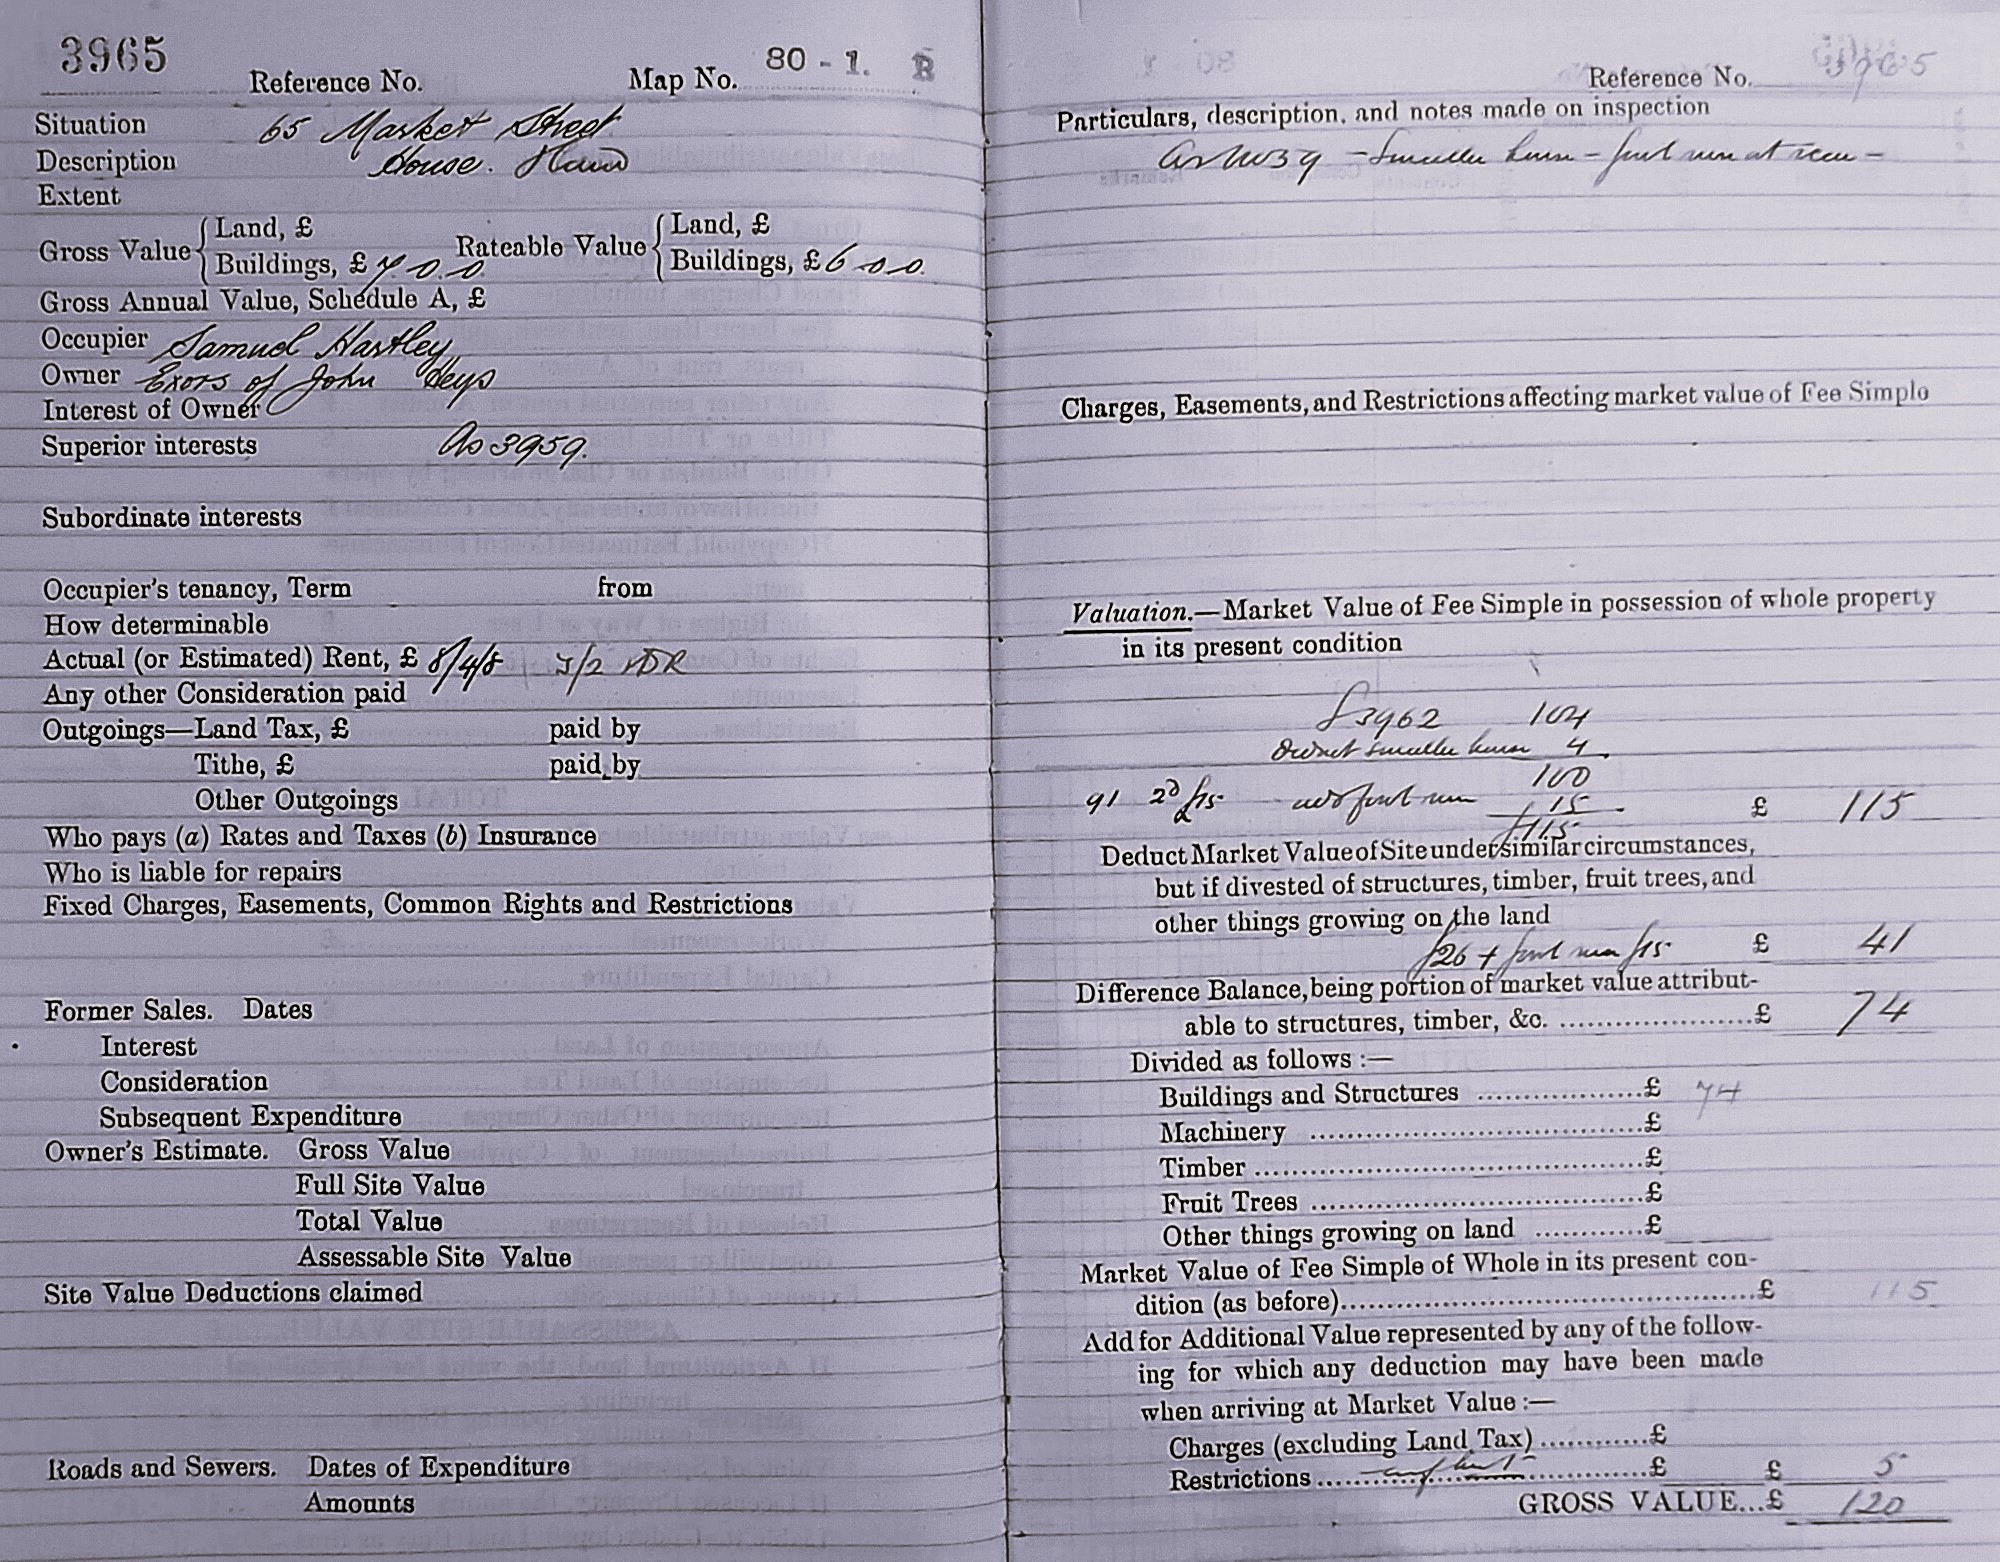 3965 Reference No. Map No. 80 - 1. B
Situation 65 Market Street
Description House.
Extent
Gross Value { Land, £ Rateable Value { Land, £
Buildings, £ 7-0-0 Buildings, £ 6-0-0.
Gross Annual Value, Schedule A, £
Occupier Samuel Hartley
Owner Exors of John Heys
Interest of Owner
Superior interests As 3959.
Subordinate interests
Occupier's tenancy, Term from
How determinable
Actual (or Estimated) Rent, £ 8/4/8
Any other Consideration paid
Outgoings—Land Tax, £ paid by
Tithe, £ paid by
Other Outgoings
Who pays (a) Rates and Taxes (b) Insurance
Who is liable for repairs
Fixed Charges, Easements, Common Rights and Restrictions
Former Sales. Dates
Interest
Consideration
Subsequent Expenditure
Owner's Estimate. Gross Value
Full Site Value
Total Value
Assessable Site Value
Site Value Deductions claimed
Roads and Sewers. Dates of Expenditure
Amounts
Reference No. 3965
Particulars, description, and notes made on inspection
Charges, Easements, and Restrictions affecting market value of Fee Simple
Valuation.—Market Value of Fee Simple in possession of whole property
in its present condition
3962 104
4
100
91 15 £ 115
£115
Deduct Market Value of Site under similar circumstances,
but if divested of structures, timber, fruit trees, and
other things growing on the land
£26 + £ 41
Difference Balance, being portion of market value attribut-
able to structures, timber, &c. £ 74
Divided as follows :—
Buildings and Structures £ 74
Machinery £
Timber £
Fruit Trees £
Other things growing on land £
Market Value of Fee Simple of Whole in its present con-
dition (as before) £ 115
Add for Additional Value represented by any of the follow-
ing for which any deduction may have been made
when arriving at Market Value :—
Charges (excluding Land Tax) £
Restrictions £ £ 5
GROSS VALUE...£ 120